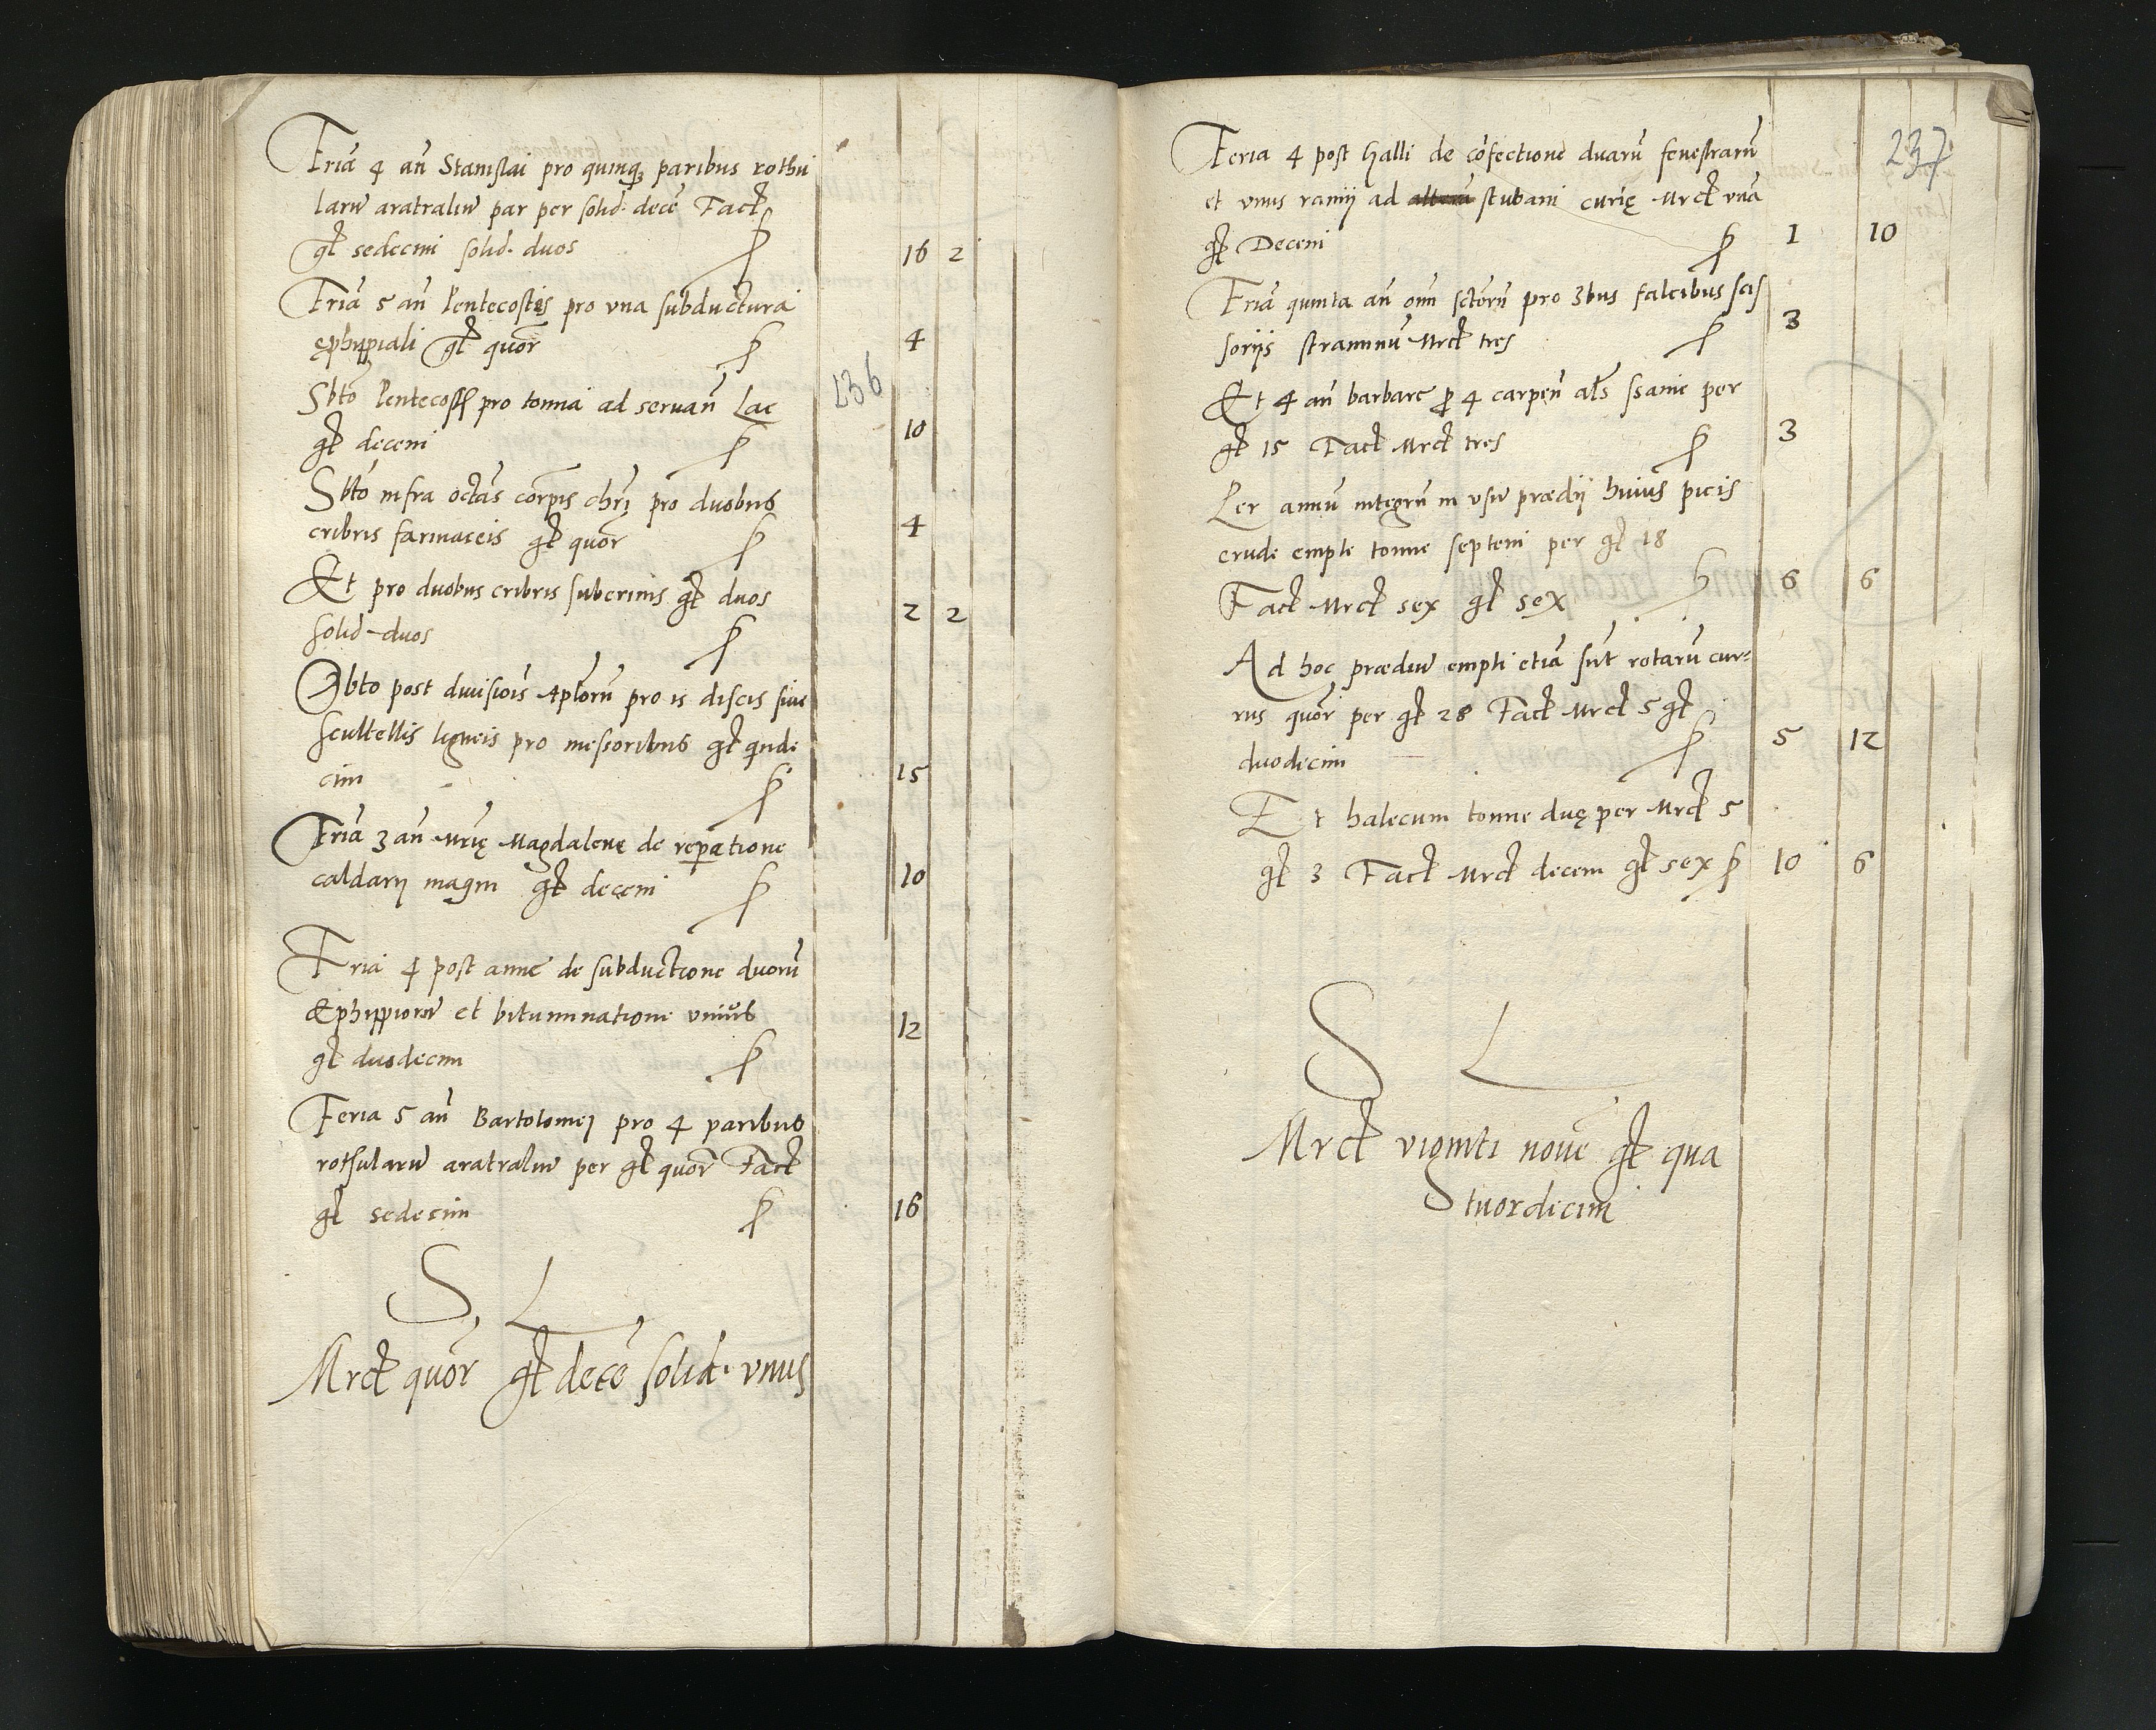 Feriā 4 an̄ Stanislai pro quinq; paribus rothu
larū aratraliū par per solid. decē Fact
gͭ sedecim solid. duos 16 2
Feriā 5 an̄ Pentecostes pro una subductura
ephippiali gͭ quōr 4
236
Sbto Pentecost pro tonna ad servan̄ Lac
gͭ decem 10
Sbto infra octās corpis chri pro duobus
cribris farinaceis gͭ quōr 4
Et pro duobus cribris suberinis gͭ duos
solid duos 2 2
Sbto post divisiōis Aplorū pro 15 discis sive
scultellis ligneis pro messoribus gͭ quinde
cim 15
Feriā 3 an̄ Mrię Magdalene de reparatione
caldarij magni gͭ decem 10
Feria 4 post anne de subductione duorū
Ephippiorū et bituminatione unius
gͭ duodecim 12
Feria 5 an̄ Bartolomej pro 4 paribus
rothularū aratraliū per gͭ quōr Fact
gͭ sedecim 16
S L
Mrct quōr gͭ decē solid. unus
237
Feria 4 post Galli de cōfectione duarū fenestrarū
et unius ramij ad stubam curię Mrct unā
gͭ Decem 1 10
Feriā quinta an̄ om̄ sctorū pro 3bus falcibus scis
sorijs straminū Mrct tres 3
Et 4 an̄ barbare p 4 carpen̄ als ssanie per
gͭ 15 Fact Mrct tres 3
Per annū integrū in usū prædij huius picis
crude empte tonne septem per gͭ 18
Fact Mrct sex gͭ sex 6 6
Ad hoc prædiū empti etiā sūt rotarū cur=
rus quōr per gͭ 28 Fact Mrct 5 gͭ
duodecim 5 12
Et halecum tonne duę per Mrct 5
gͭ 3 Fact Mrct decem gͭ sex 10 6
S L
Mrct viginti novē gͭ qua
tuordecim